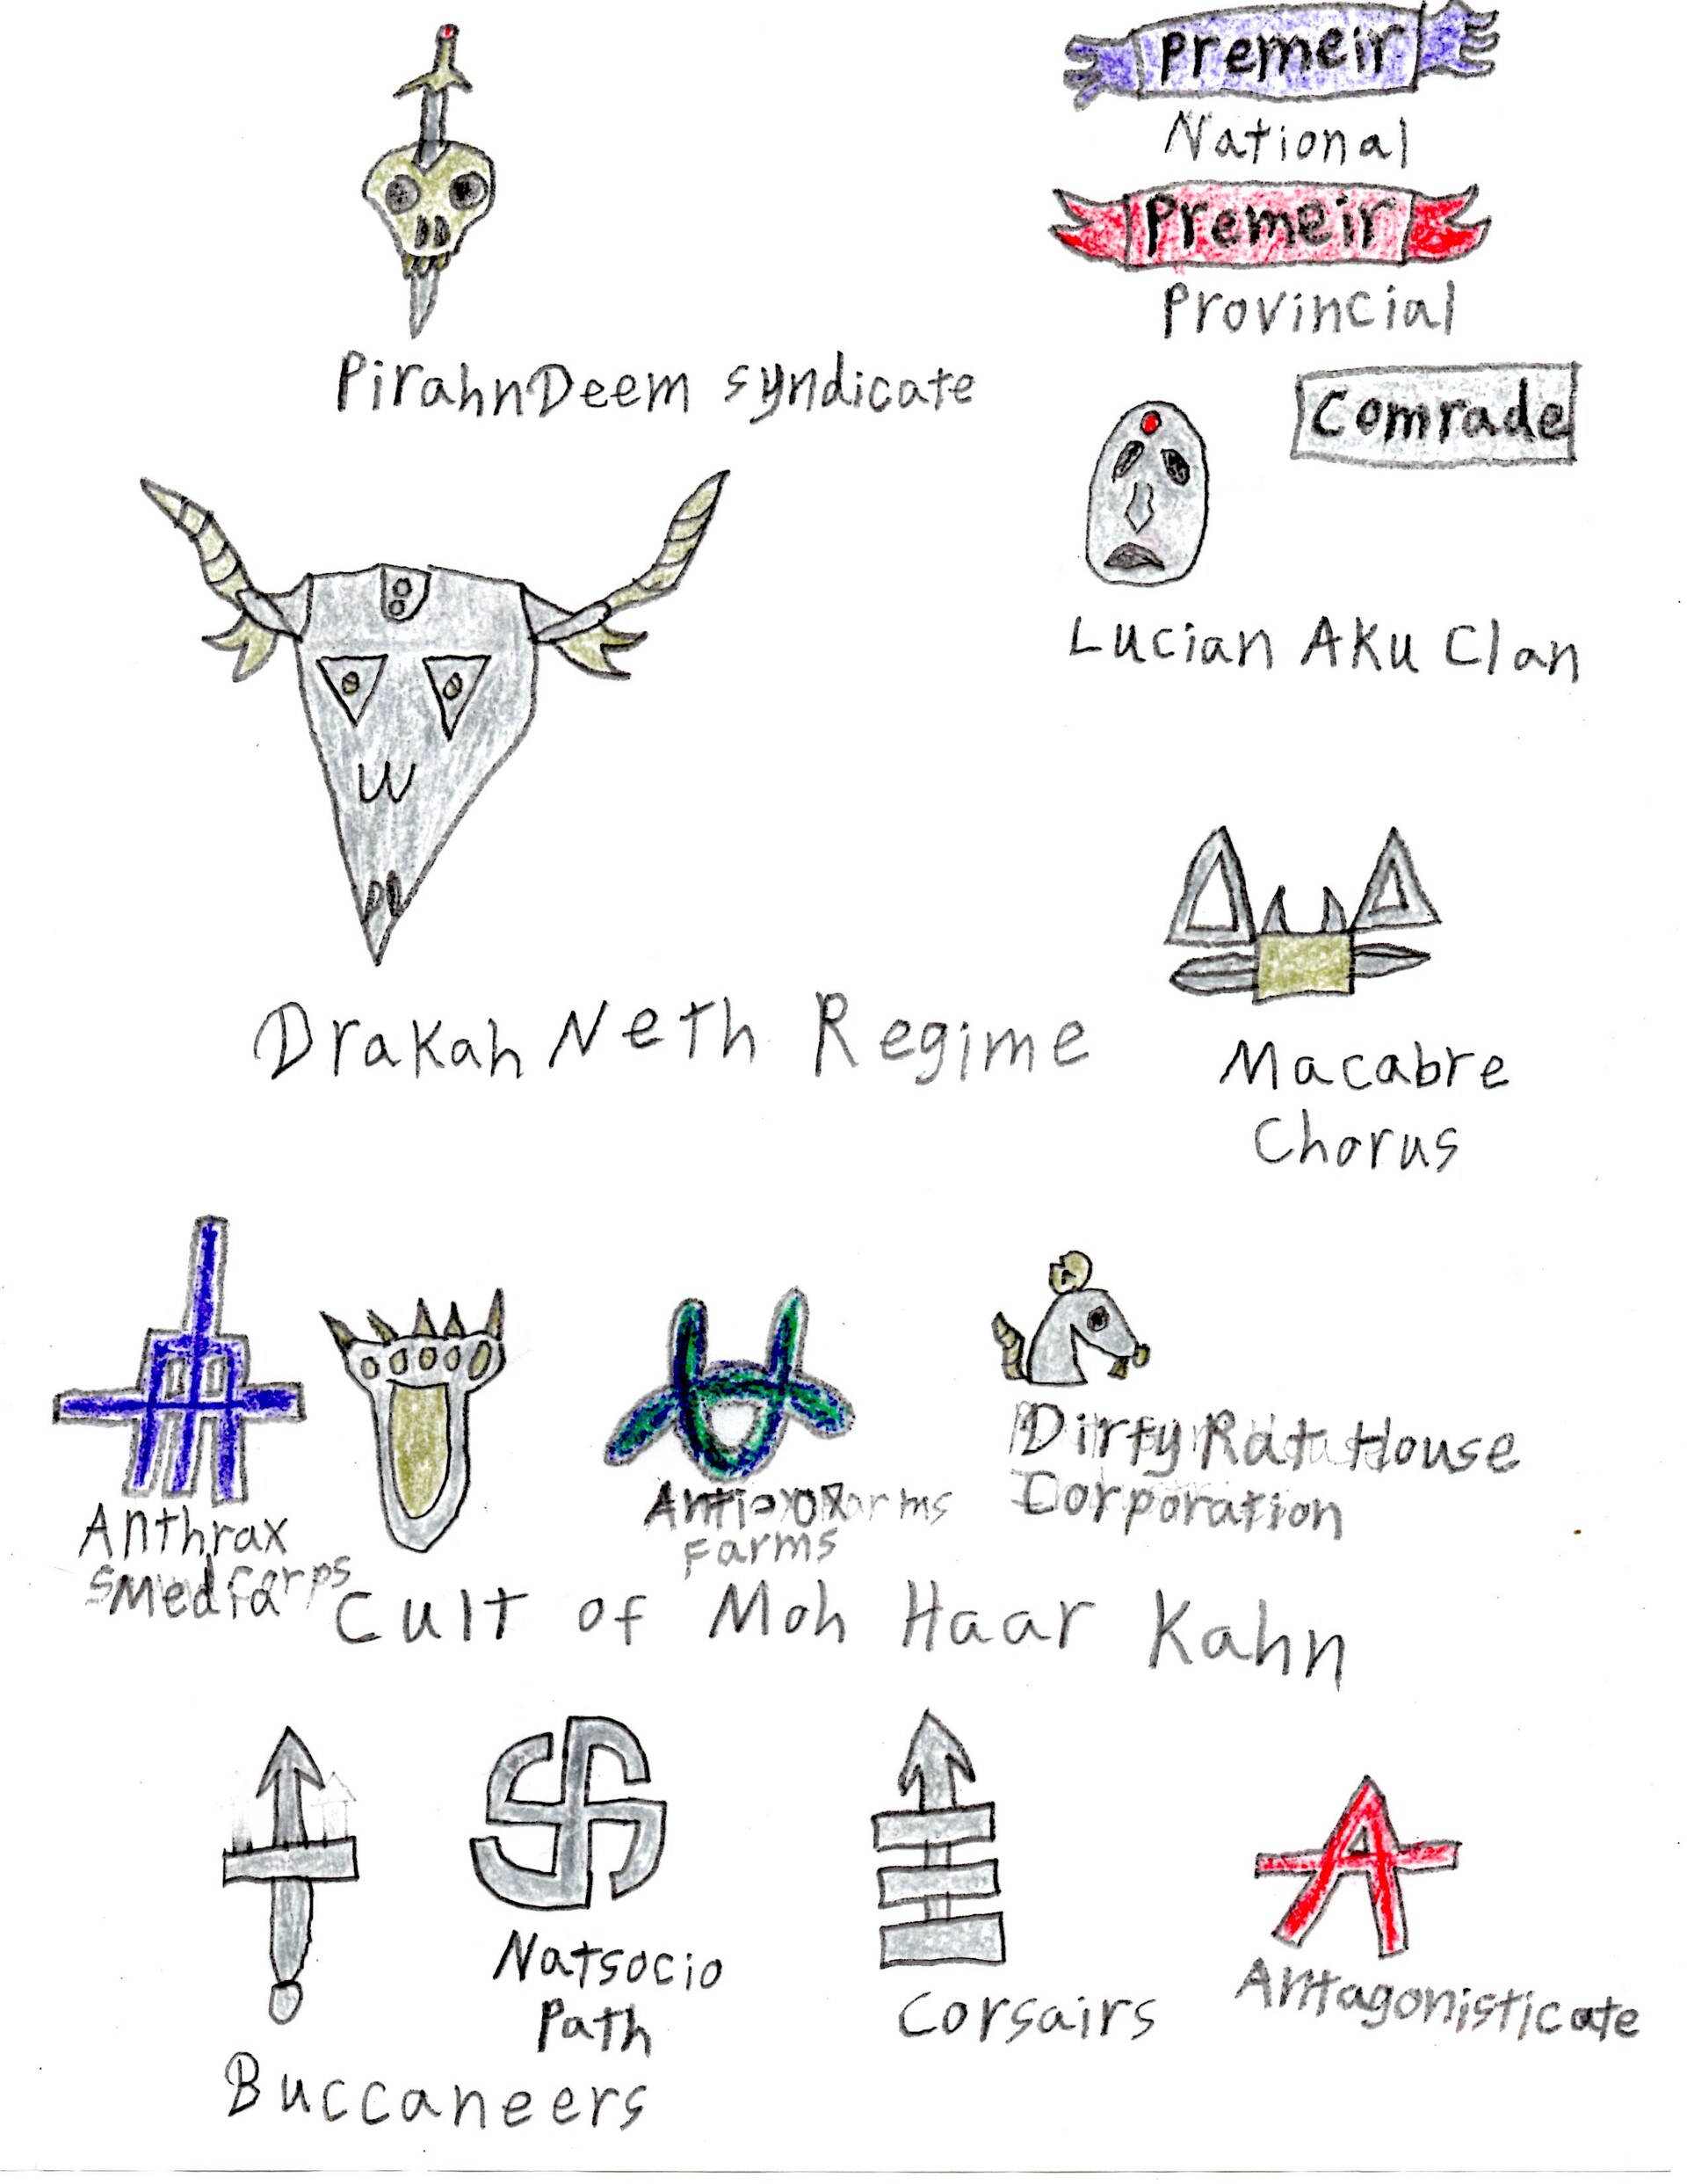 Premeir
National
Premeir
Provincial
PirahnDeem Syndicate
Comrade
Lucian Aku Clan
Drakah Neth Regime
Macabre
Chorus
Dirty Rat House
Corporation
Anthrax
Farms
Cult of Moh Haar Kahn
Natsocio
Path
Corsairs
Antagonisticate
Buccaneers